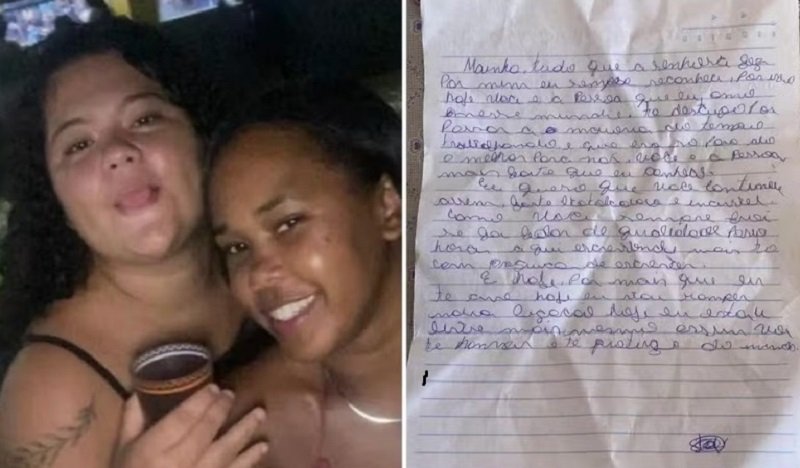 Mainha, tudo que a senhora fez
Por mim eu sempre reconheci, Por isso
hoje você é a Pessoa que eu amo
nesse mundo, te
Passar a maioria do tempo
trabalhando e que era so Para da
o melhor Para nos, você é a Pessoa
mais forte que eu conheci.
Eu quero que você continue
assim, forte e incrivel
como você sempre foi
se for falar de qualidade Passo
horas aqui escrevendo mais to
com preguiça de escrever.
E hoje, Por mais que eu
te ame hoje eu vou romper
nossa ligação hoje eu estou
livre mais mesmo assim vou
te e te protege do mundo.